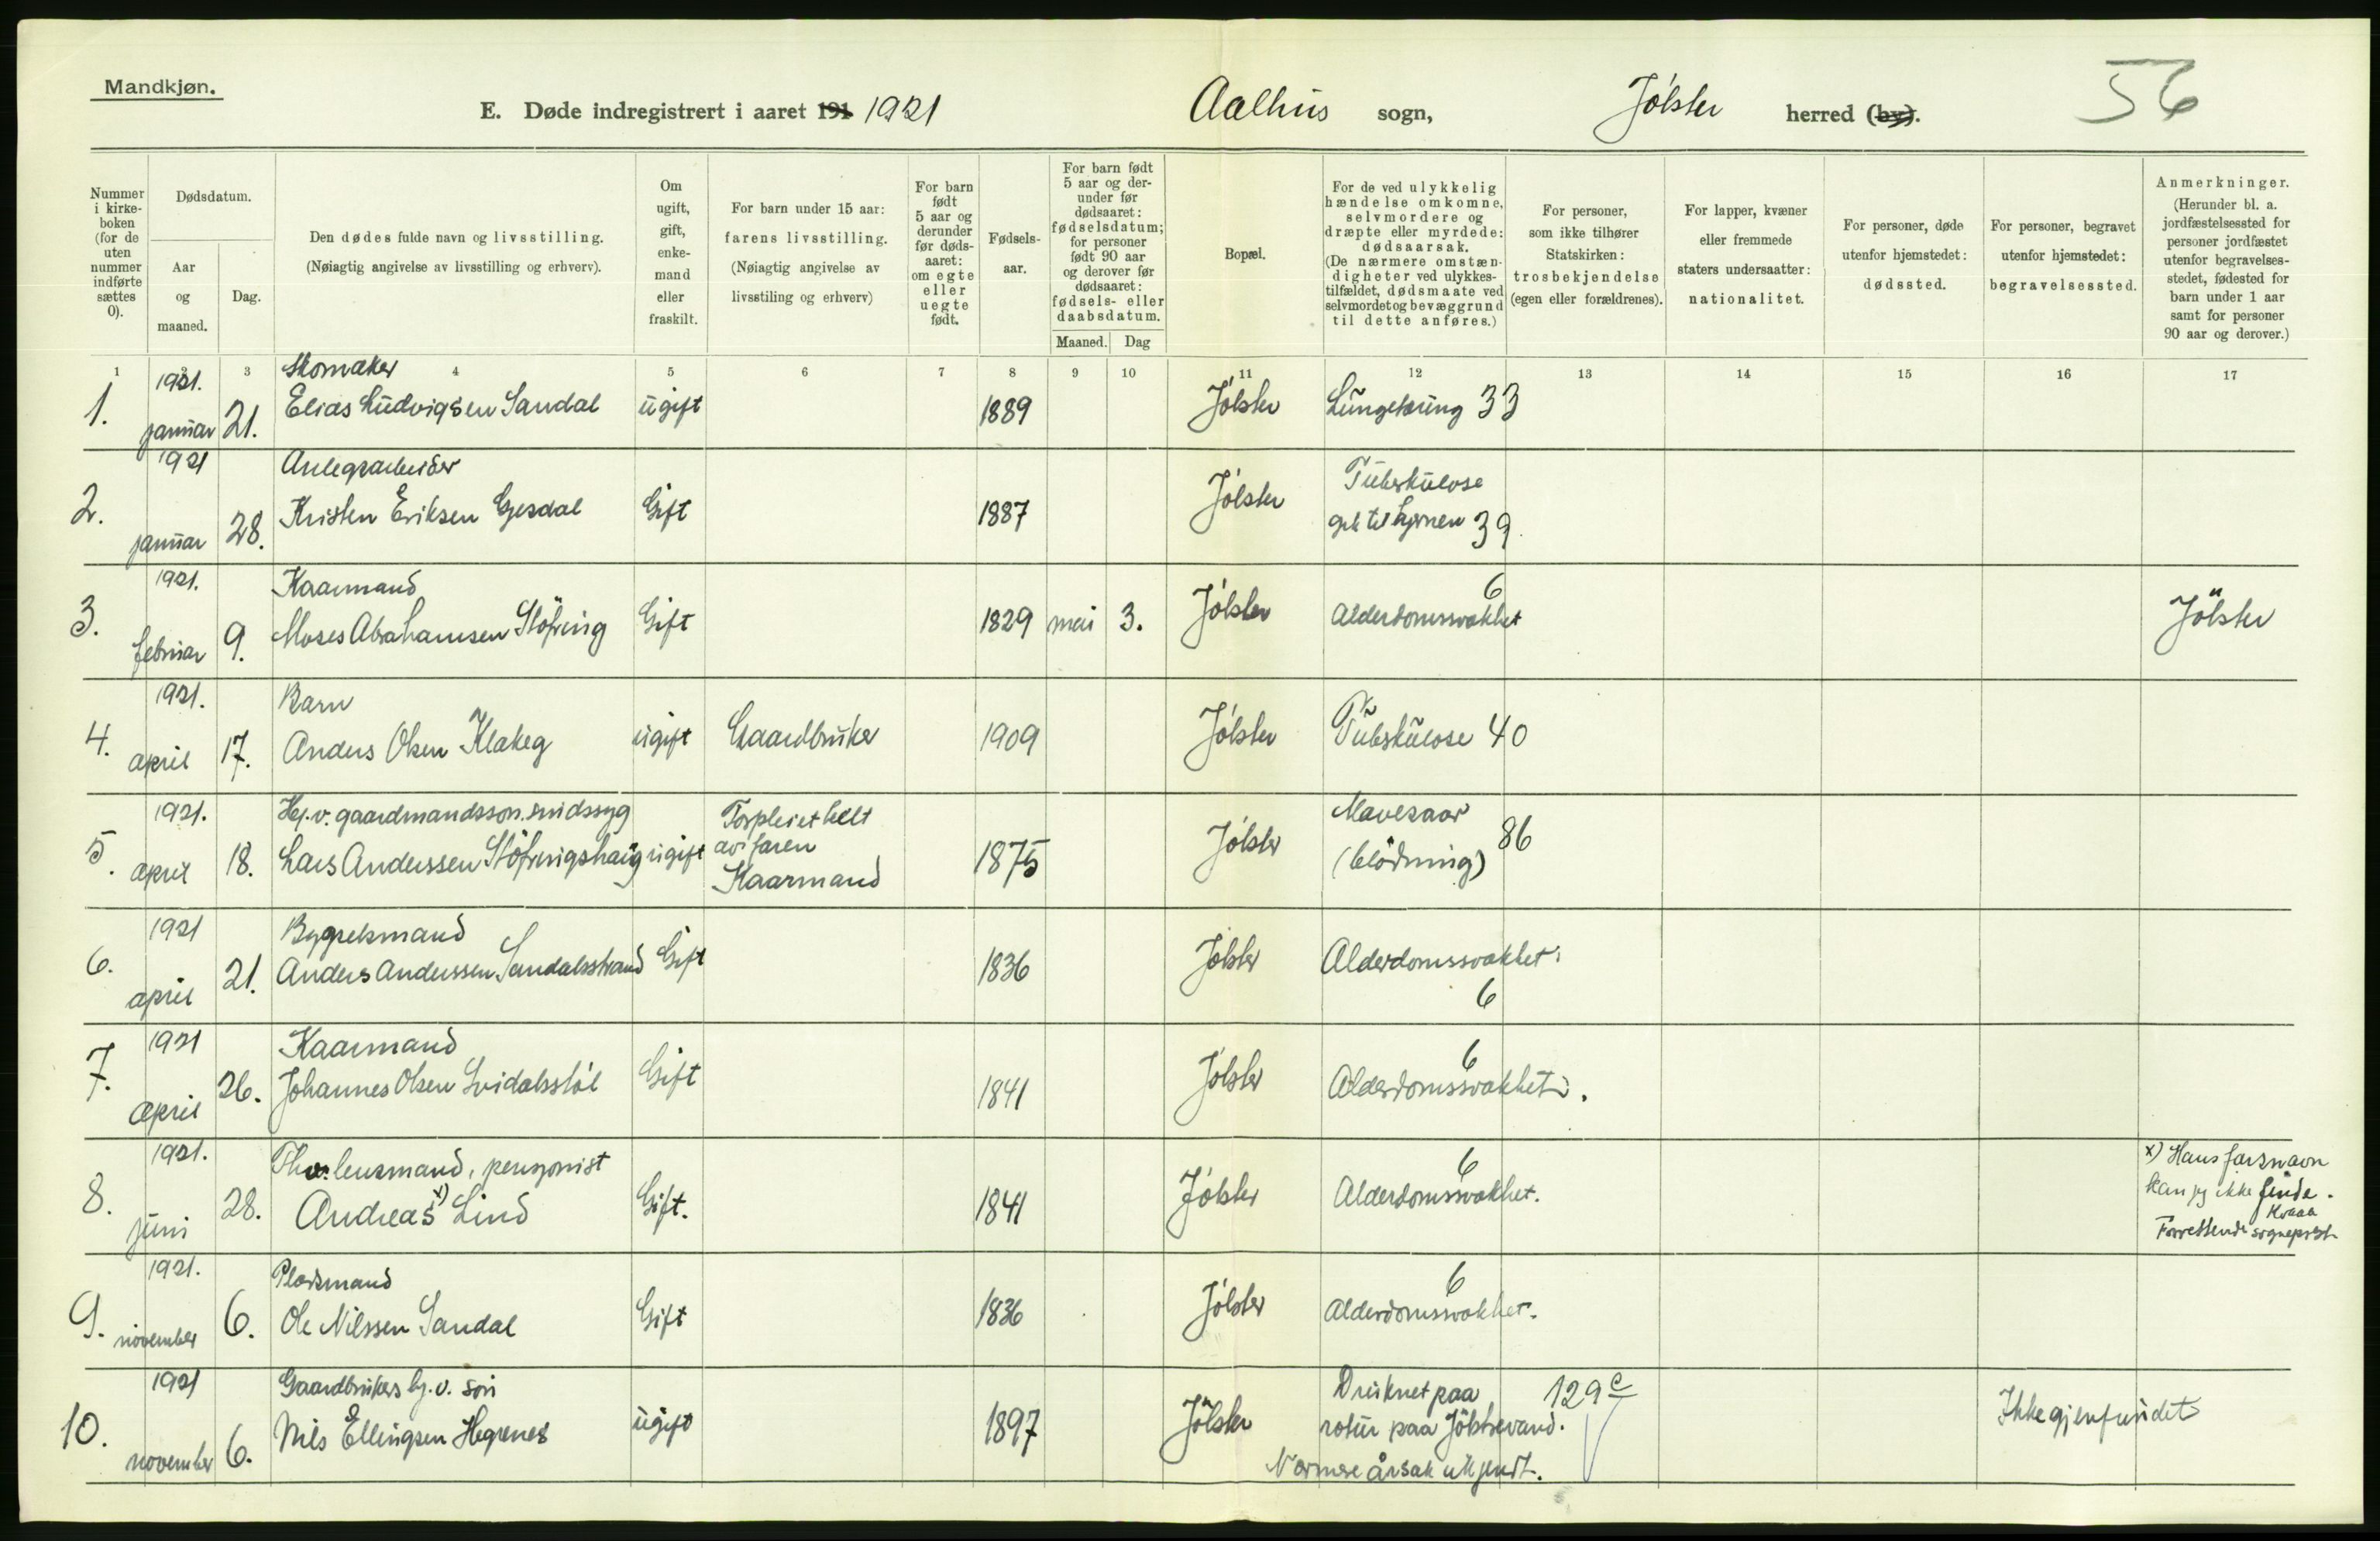 Mandkjøn.
E. Døde indregistrert i aaret 191 1921 Aalhus sogn, Jølster herred (by). 56
Nummer i kirke-boken (for de uten nummer indførte sættes 0).
Dødsdatum.
Aar og maaned.
Dag.
Den dødes fulde navn og livsstilling.
(Nøiagtig angivelse av livsstilling og erhverv).
Om ugift, gift, enke-mand eller fraskilt.
For barn under 15 aar: farens livsstilling.
(Nøiagtig angivelse av livsstiling og erhverv)
For barn født 5 aar og derunder før døds-aaret: om egte eller uegte født.
Fødsels-aar.
For barn født 5 aar og der-under før dødsaaret: fødselsdatum; for personer født 90 aar og derover før dødsaaret: fødsels- eller daabsdatum.
Maaned. Dag
Bopæl.
For de ved ulykkelig hændelse omkomne, selvmordere og dræpte eller myrdede: dødsaarsak.
(De nærmere omstæn-digheter ved ulykkes-tilfældet, dødsmaate ved selvmordet og bevæggrund til dette anføres.)
For personer, som ikke tilhører Statskirken: trosbekjendelse (egen eller forældrenes).
For lapper, kvæner eller fremmede staters undersaatter: nationalitet.
For personer, døde utenfor hjemstedet: dødssted.
For personer, begravet utenfor hjemstedet: begravelsessted.
Anmerkninger.
(Herunder bl. a. jordfæstelsessted for personer jordfæstet utenfor begravelses-stedet, fødested for barn under 1 aar samt for personer 90 aar og derover.)
1 3 4 5 6 7 8 9 10 11 12 13 14 15 16 17
1. 1921. januar 21. Skomaker Elias Ludvigsen Sandal ugift 1889 Jølster Lungetæring 33
2. 1921 januar 28. Anlegsarbeider Kristen Eriksen Gjesdal Gift 1887 Jølster Tuberkulose gik til hjernen 39
3. 1921. februar 9. Kaarmand Moses Abrahamsen Støfring Gift 1829 mai 3. Jølster Alderdomssvakhet 6 Jølster
4. 1921. april 17. Barn Anders Olsen Klakeg ugift Gaardbruker 1909 Jølster Tuberkulose 40
5. 1921. april 18. Hj.v. gaardmandsson. sindssyg Lars Anderssen Støfringshaug ugift Forpleiet helt av faren Kaarmand 1875 Jølster Mavesaar (blødning) 86
6. 1921 april 21. Bygselsmand Anders Anderssen Sandalsstrand Gift 1836 Jølster Alderdomssvakhet. 6
7. 1921 april 26. Kaarmand Johannes Olsen Svidalsstøl Gift 1841 Jølster Alderdomssvakhet. 6
8. 1921. juni 28. lensmand, pensjonist Andreas x) Lind Gift. 1841 Jølster Alderdomssvakhet. 6 x) Hans farsnavn kan jeg ikke finde. Kvaal Forrettende sogneprest
9. 1921. november 6. Pladsmand Ole Nilssen Sandal Gift 1836 Jølster Alderdomssvakhet. 6
10. 1921 november 6. Gaardbrukers hj.v. søn Nils Ellingsen Hegrenes ugift 1897 Jølster Druknet paa rotur paa Jølstrevand. Nærmere årsak ukjendt. 129 c Ikke gjenfundet